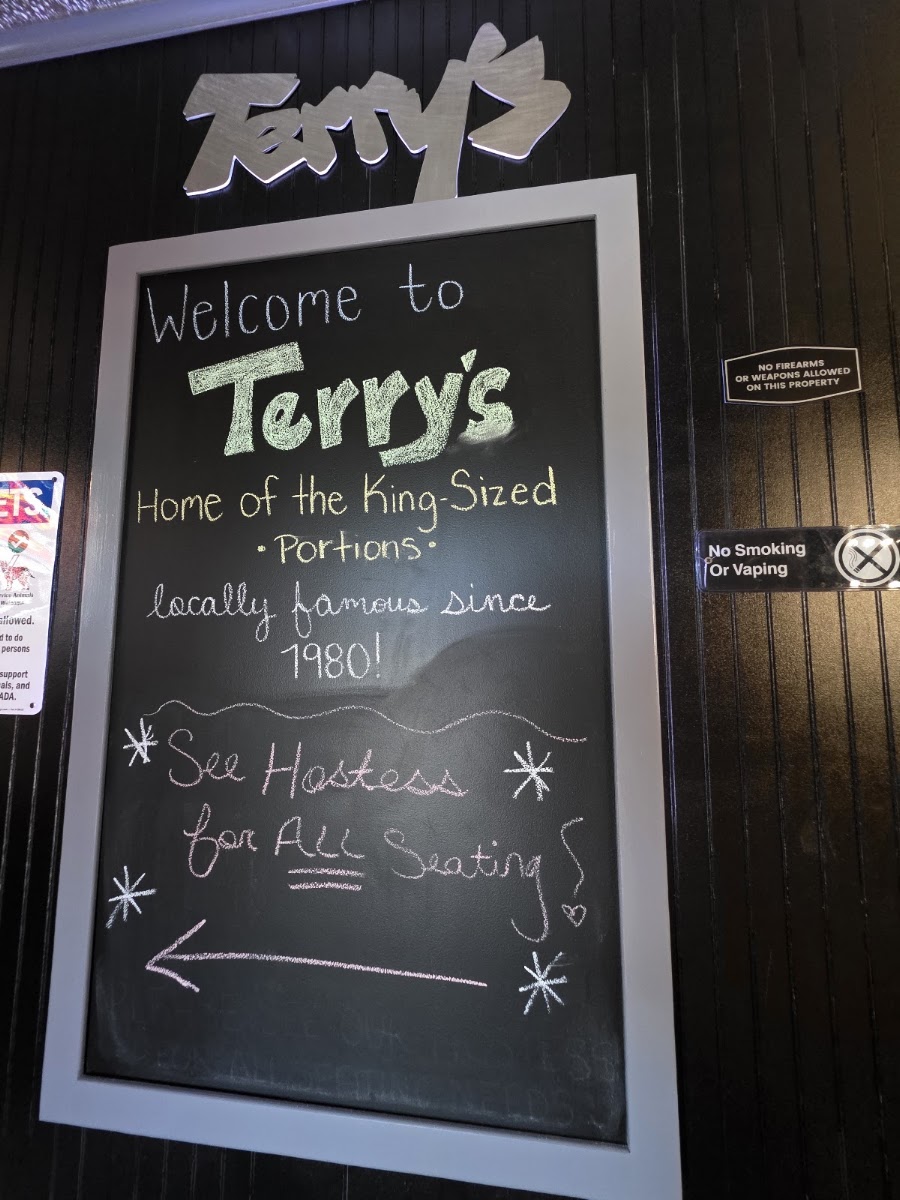 Terry's
Welcome to
Terry's
Home of the King-Sized
• Portions •
locally famous since
1980!
See Hostess
for ALL Seating!
NO FIREARMS
OR WEAPONS ALLOWED
ON THIS PROPERTY
No Smoking
Or Vaping
ETS
allowed.
d to do
persons
support
als, and
ADA.